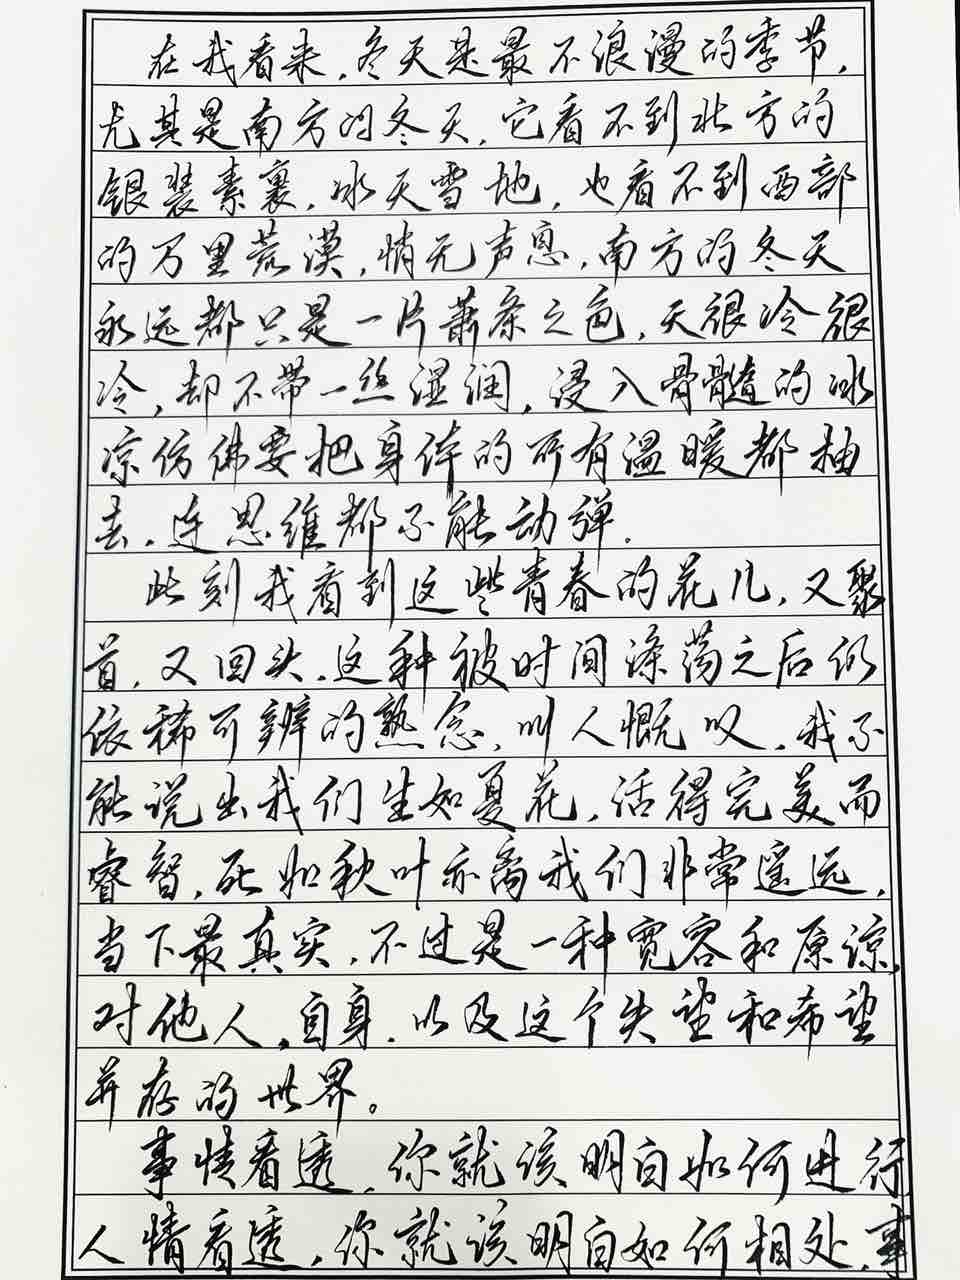 在我看来，冬天是最不浪漫的季节，
尤其是南方的冬天，它看不到北方的
银装素裹，冰天雪地，也看不到西部
的万里荒漠，悄无声息，南方的冬天
永远都只是一片萧条之色，天很冷很
冷，却不带一丝湿润，浸入骨髓的冰
凉仿佛要把身体的所有温暖都抽
去，连思维都不能动弹.
此刻我看到这些青春的花儿，又聚
首，又回头，这种被时间涤荡之后仍
依稀可辨的熟念，叫人慨叹，我不
能说出我们生如夏花，活得完美而
睿智，死如秋叶亦离我们非常遥远，
当下最真实，不过是一种宽容和原谅，
对他人，自身，以及这个失望和希望
并存的世界。
事情看透，你就该明白如何进行，
人情看透，你就该明白如何相处，事